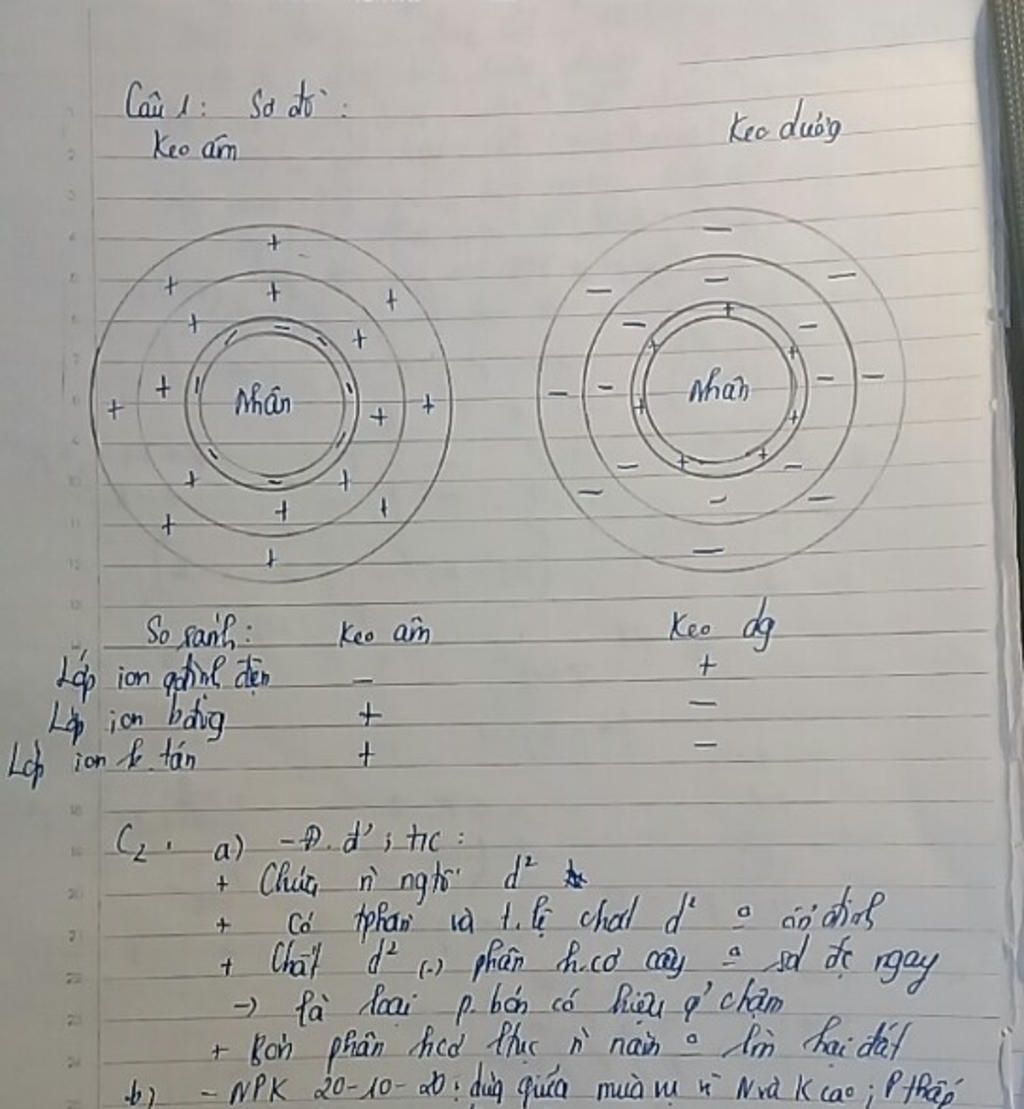 Câu 1: Sơ đồ:
Keo âm Keo dương
+ + + + + + + + + + + + + + + +
− − − − − − − −
Nhân
− − − − − − − − − − − − − − − −
+ + + + + + + +
Nhân
So sánh: Keo âm Keo dg
Lớp ion qđịnh điện − +
Lớp ion bđộg + −
Lớp ion k.tán + −
C2. a) - Đ.đ', t/c:
+ Chứa n` ngtố d²
+ Có tphần và t.lệ chất d² o ổn định
+ Chất d² (-) phân h.cơ cây o sd đc ngay
-> là loại p.bón có hiệu q' chậm
+ Bón phân hcơ n` năm o làm hại đất
b) - NPK 20-10-20: dùg giữa mùa vụ vì N và K cao; P thấp